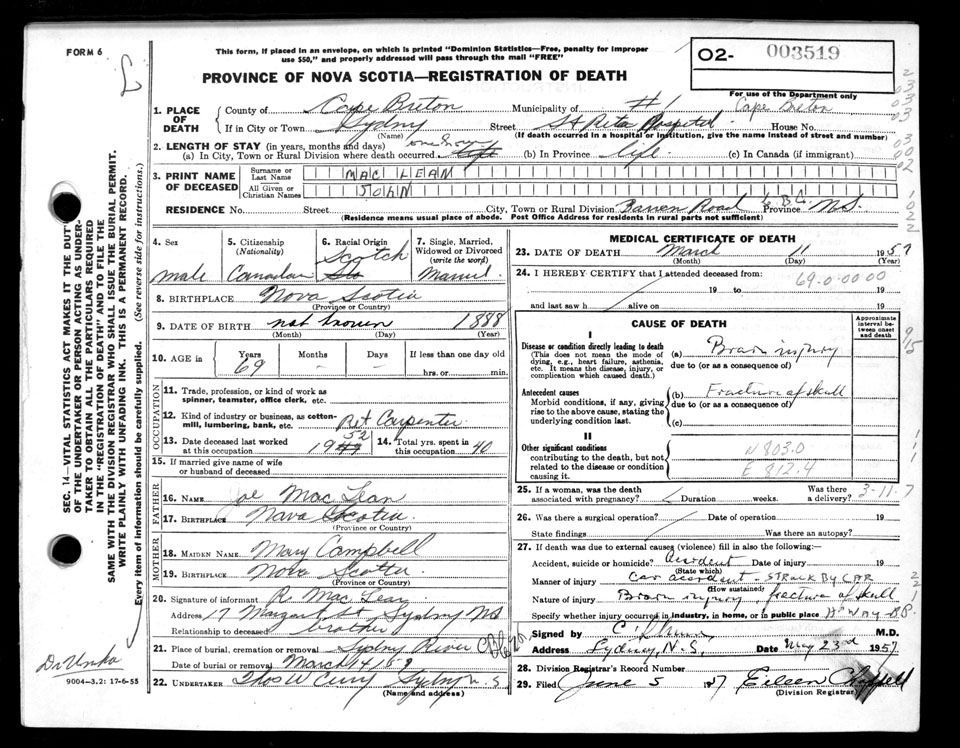 FORM 6
This form, if placed in an envelope, on which is printed "Dominion Statistics—Free, penalty for improper
use $50," and properly addressed will pass through the mail "FREE"
PROVINCE OF NOVA SCOTIA—REGISTRATION OF DEATH
O2- 003519
For use of the Department only
1. PLACE OF DEATH
County of Cape Breton Municipality of #1 Cape Breton
If in City or Town Sydney Street St Rita Hospital House No.
(Name) (If death occurred in a hospital or institution, give the name instead of street and number)
2. LENGTH OF STAY (in years, months and days)
(a) In City, Town or Rural Division where death occurred one hour (b) In Province life (c) In Canada (if immigrant)
3. PRINT NAME OF DECEASED
Surname or Last Name MAC LEAN
All Given or Christian Names JOHN
RESIDENCE No. Street City, Town or Rural Division Road C.B.Co. Province N.S.
(Residence means usual place of abode. Post Office Address for residents in rural parts not sufficient)
4. Sex male
5. Citizenship (Nationality) Canadian
6. Racial Origin Scotch
7. Single, Married, Widowed or Divorced (write the word) Married
8. BIRTHPLACE Nova Scotia
(Province or Country)
9. DATE OF BIRTH not known 1888
(Month) (Day) (Year)
10. AGE in Years 69 Months - Days - If less than one day old
hrs. or min.
OCCUPATION
11. Trade, profession, or kind of work as spinner, teamster, office clerk, etc.
12. Kind of industry or business, as cotton-mill, lumbering, bank, etc. Ret Carpenter
13. Date deceased last worked at this occupation 1952
14. Total yrs. spent in this occupation 40
15. If married give name of wife or husband of deceased
FATHER
16. NAME Joe MacLean
17. BIRTHPLACE Nova Scotia
(Province or Country)
MOTHER
18. MAIDEN NAME Mary Campbell
19. BIRTHPLACE Nova Scotia
(Province or Country)
20. Signature of informant R. MacLean
Address 17 Margaret St, Sydney NS
Relationship to deceased brother
21. Place of burial, cremation or removal Sydney River CBCo.
Date of burial or removal March 14, 1957
22. UNDERTAKER Thos W Curry Sydney N.S
(Name and address)
MEDICAL CERTIFICATE OF DEATH
23. DATE OF DEATH March 11 1957
(Month) (Day) (Year)
24. I HEREBY CERTIFY that I attended deceased from:
69-0-00 00
19 to 19
and last saw h alive on 19
CAUSE OF DEATH
Approximate interval between onset and death
I
Disease or condition directly leading to death
(This does not mean the mode of dying, e.g., heart failure, asthenia, etc. It means the disease, injury, or complication which caused death.)
(a) Brain injury
due to (or as a consequence of)
Antecedent causes
Morbid conditions, if any, giving rise to the above cause, stating the underlying condition last.
(b) Fracture of skull
due to (or as a consequence of)
(c)
II
Other significant conditions
contributing to the death, but not related to the disease or condition causing it.
N 803.0
E 812.4
25. If a woman, was the death associated with pregnancy? Duration weeks. Was there a delivery?
3-11-7
26. Was there a surgical operation? Date of operation 19
State findings Was there an autopsy?
27. If death was due to external causes (violence) fill in also the following:—
Accident, suicide or homicide? Accident Date of injury 19
(State which)
Manner of injury Car accident - STRUCK BY CAR
(How sustained)
Nature of injury Brain injury, fracture of skull
Specify whether injury occurred in industry, in home, or in public place
Signed by M.D.
Address Sydney, N.S. Date May 23rd 1957
28. Division Registrar's Record Number
29. Filed June 5 1957 Eileen
(Division Registrar)
SEC. 14—VITAL STATISTICS ACT MAKES IT THE DUTY
OF THE UNDERTAKER OR PERSON ACTING AS UNDER-
TAKER TO OBTAIN ALL THE PARTICULARS REQUIRED
IN THE "REGISTRATION OF DEATH" AND TO FILE THE
SAME WITH THE DIVISION REGISTRAR WHO SHALL ISSUE THE BURIAL PERMIT.
WRITE PLAINLY WITH UNFADING INK. THIS IS A PERMANENT RECORD.
Every item of information should be carefully supplied. (See reverse side for instructions.)
9004-3.2: 17-6-55